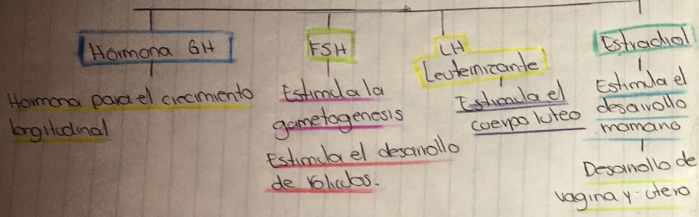 Hormona GH
Hormona para el crecimiento
longitudinal
FSH
Estimula la
gametogenesis
Estimula el desarrollo
de foliculos.
LH
Leuteinizante
Estimula el
cuerpo luteo
Estradiol
Estimula el
desarrollo
mamario
Desarrollo de
vagina y utero